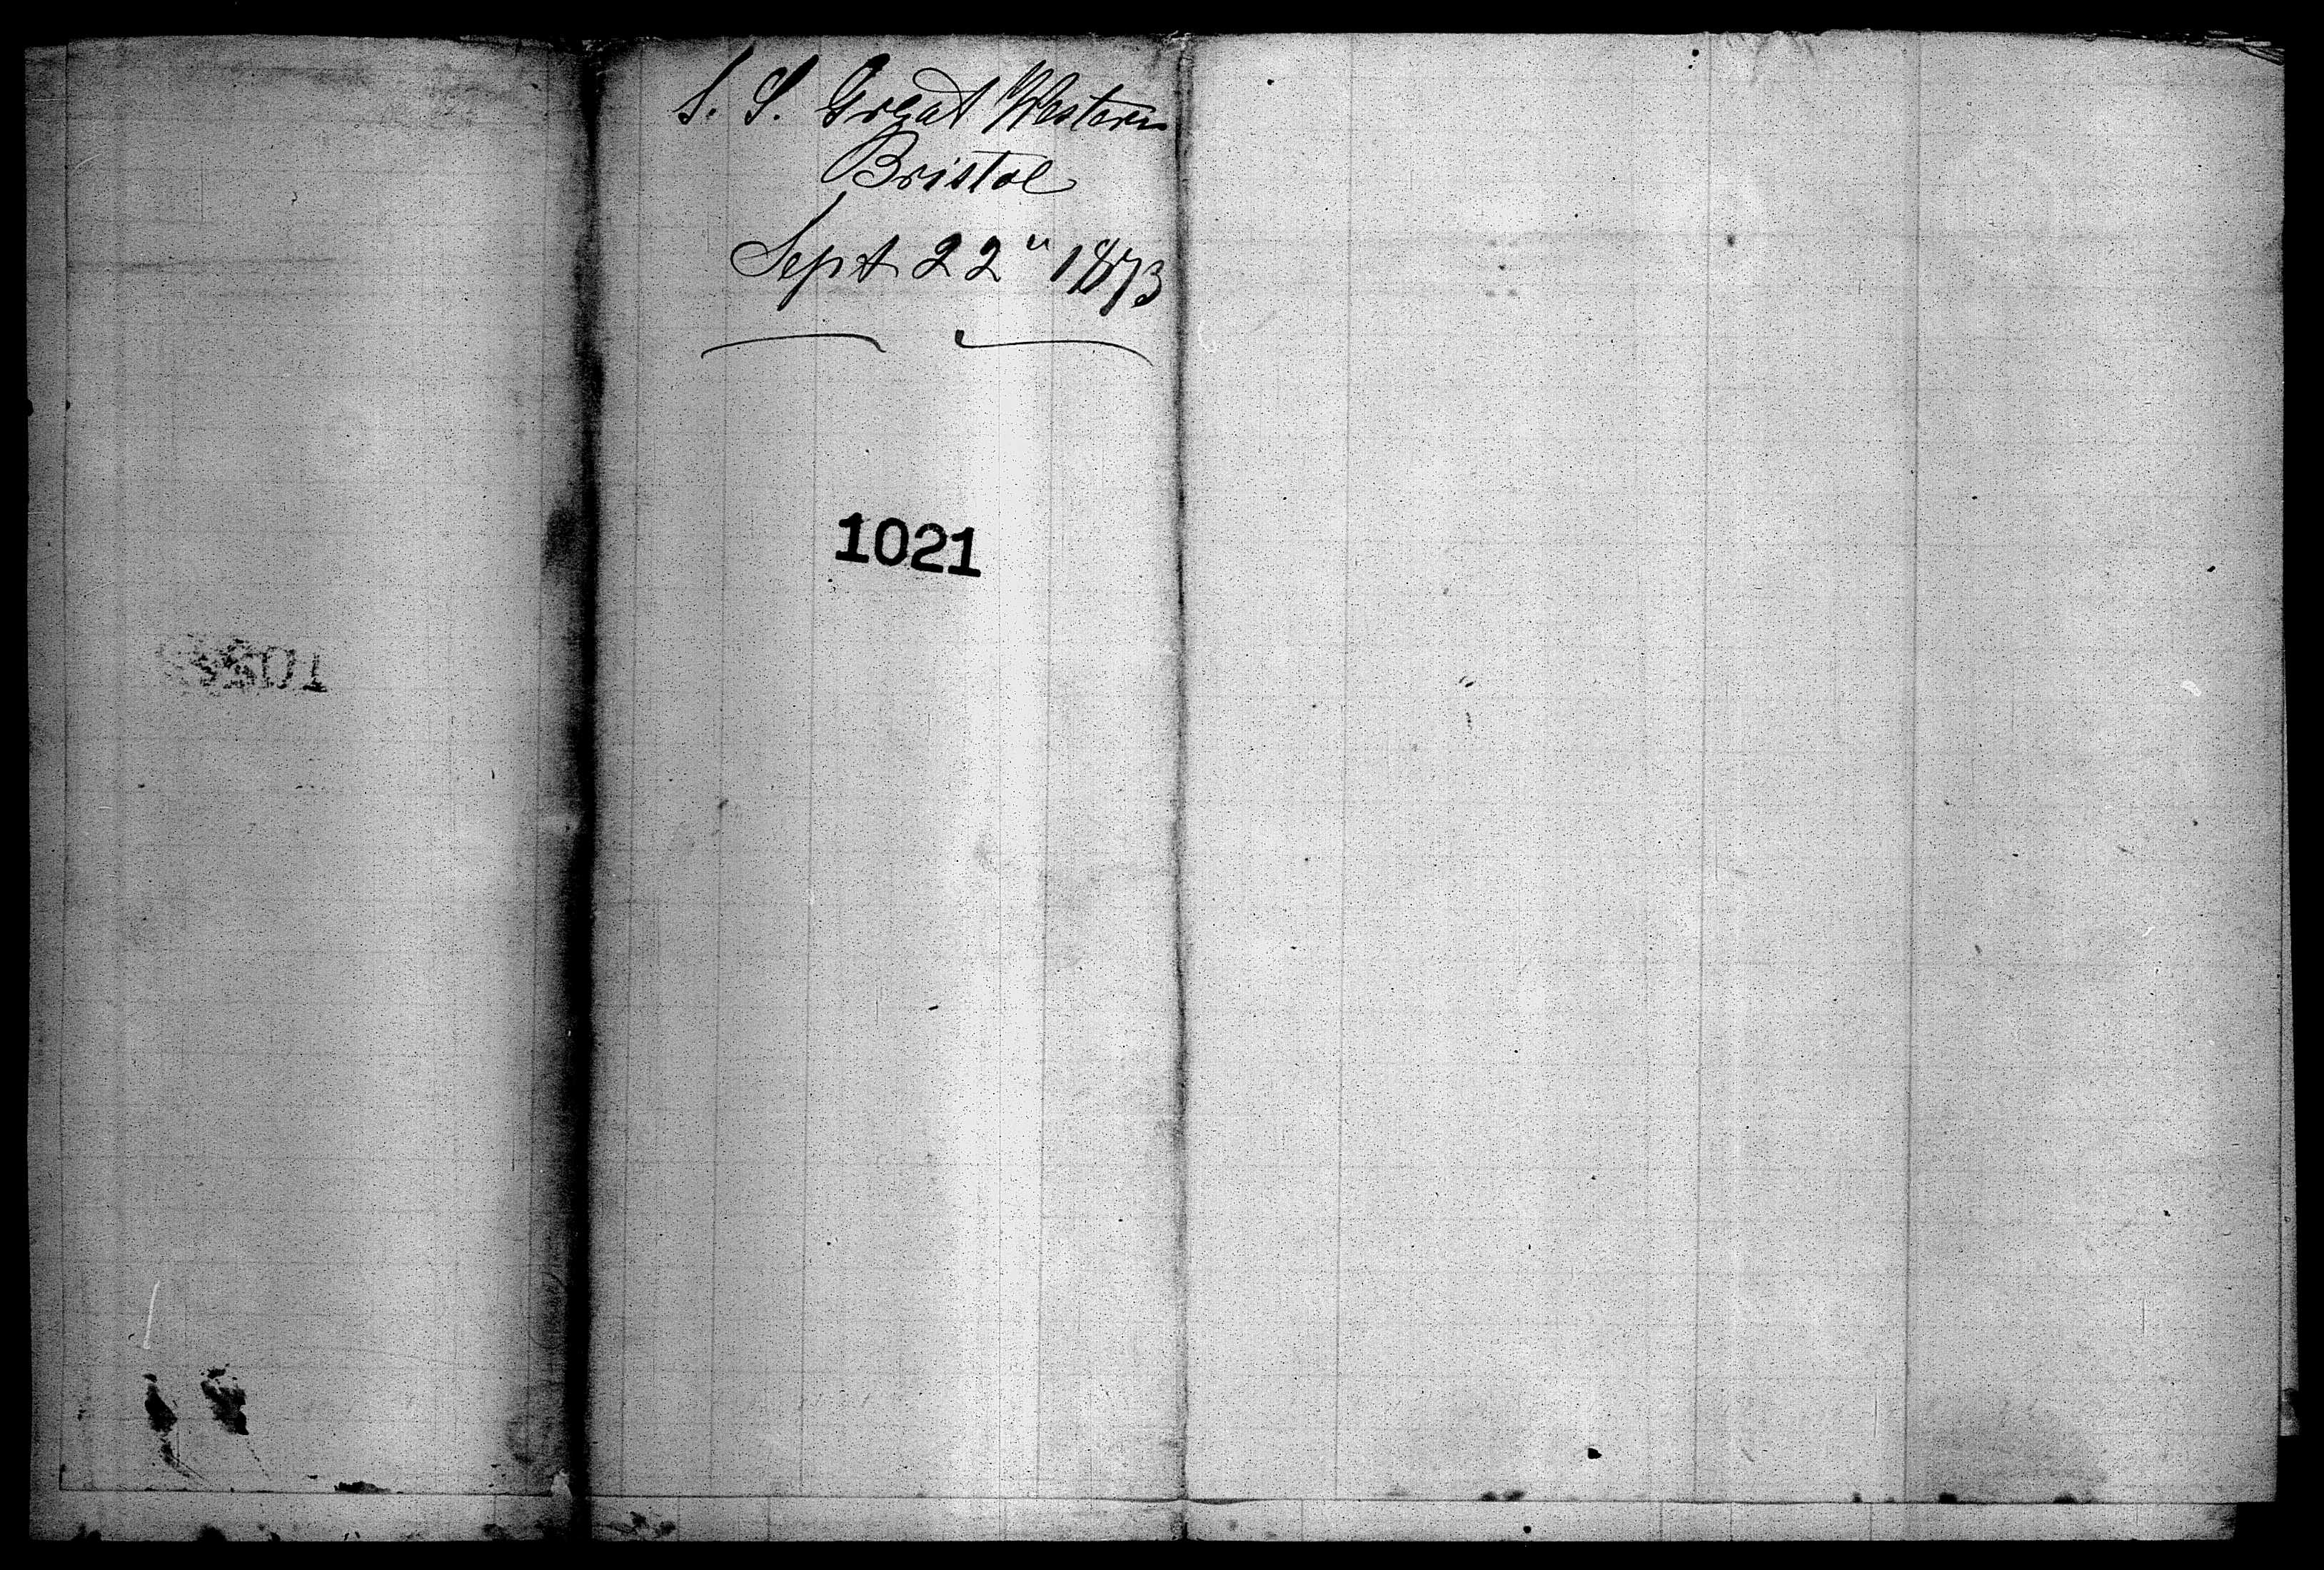 S. S. Great Western
Bristol
Sept 22" 1873
1021